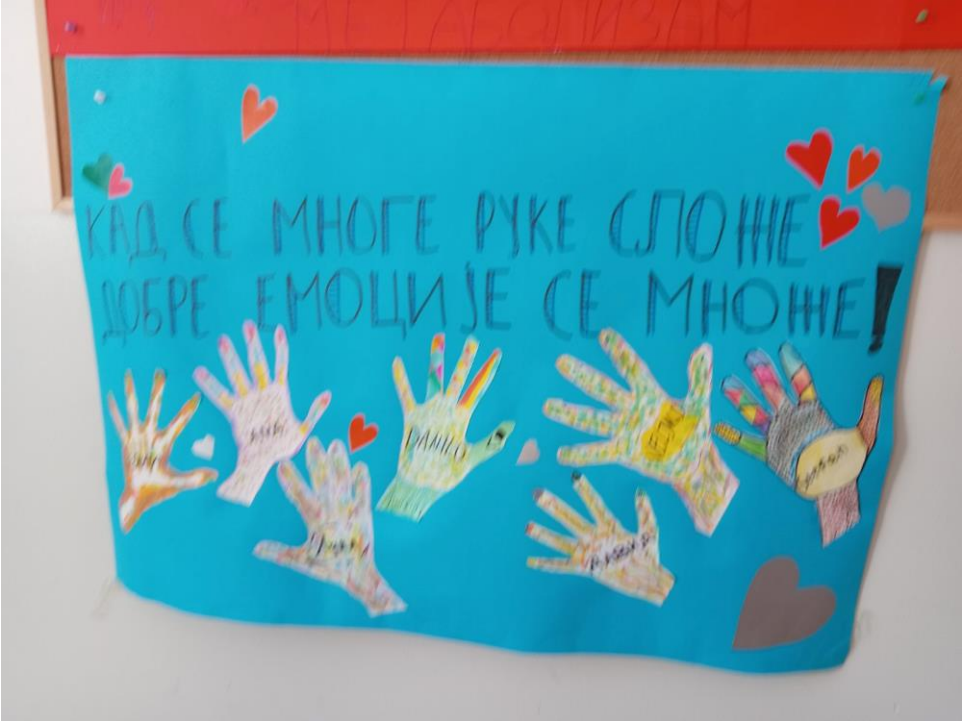 МЕТАБОЛИЗАМ
КАД СЕ МНОГЕ РУКЕ СЛОЖЕ
ДОБРЕ ЕМОЦИЈЕ СЕ МНОЖЕ!
DANILO